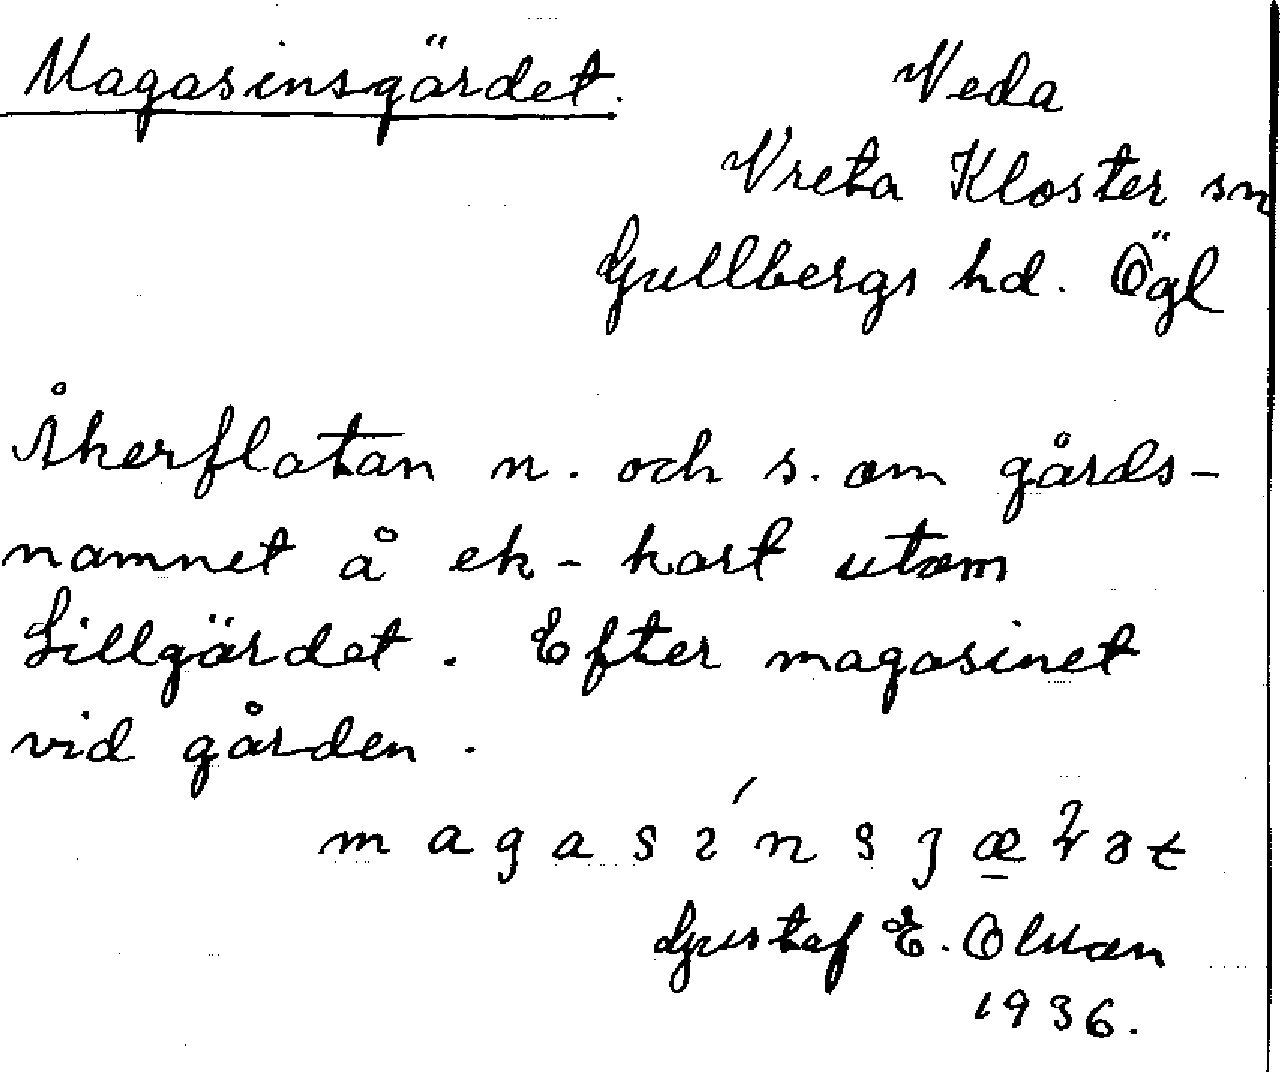 Magasinsgärdet.
Veda
Vreta Kloster sn
Gullbergs hd. Ögl
Åkerflatan n. och s. om gårds-
namnet å ek-kart utom
Lillgärdet. Efter magasinet
vid gården.
Gustaf E. Olsson
1936.